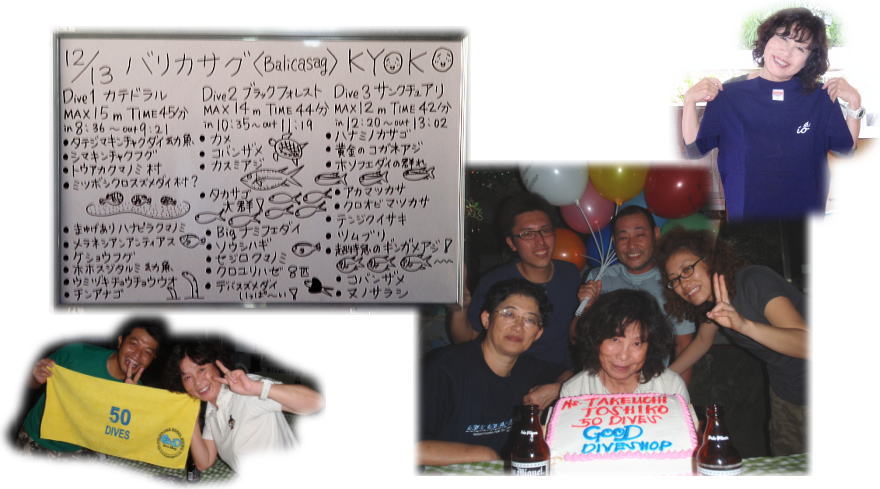 12/13 バリカサグ〈Balicasag〉 KYOKO
Dive1 カテドラル
MAX 15m TIME 45分
in 8:36～out 9:21
・タテジマキンチャクダイ幼魚
・シマキンチャクフグ
・トウアカクマノミ村
・ミツボシクロスズメダイ村?
・まゆげありハナビラクマノミ
・メラネシアンアンティアス
・ケショウフグ
・ホホスジタルミ幼魚
・ウミヅキチョウチョウウオ
・チンアナゴ
Dive2 ブラックフォレスト
MAX 14m TIME 44分
in 10:35～out 11:19
・カメ
・コバンザメ
・カスミアジ
・タカサゴ
大群!
・Big フエダイ
・ソウシハギ
・セジロクマノミ
・クロユリハゼ
・デバスズメダイ
いっぱ～い!
Dive3 サンクチュアリ
MAX 12m TIME 42分
in 12:20～out 13:02
・ハナミノカサゴ
・黄金のコガネアジ
・ホソフエダイの群れ
・アカマツカサ
・クロオビマツカサ
・テンジクイサキ
・ツムブリ
・超特急のギンガメアジ!
・コバンザメ
・ヌノサラシ
50
DIVES
Ms. TAKEUCHI
TOSHIKO
50 DIVES
GOOD
DIVESHOP